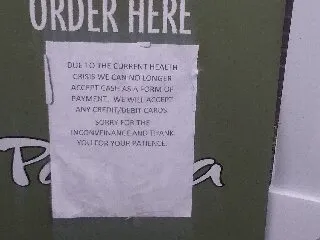 ORDER HERE
DUE TO THE CURRENT HEALTH
CRISIS WE CAN NO LONGER
ACCEPT CASH AS A FORM OF
PAYMENT. WE WILL ACCEPT
ANY CREDIT/DEBIT CARDS
SORRY FOR THE
INCONVEINANCE AND THANK
YOU FOR YOUR PATIENCE.
Pa a